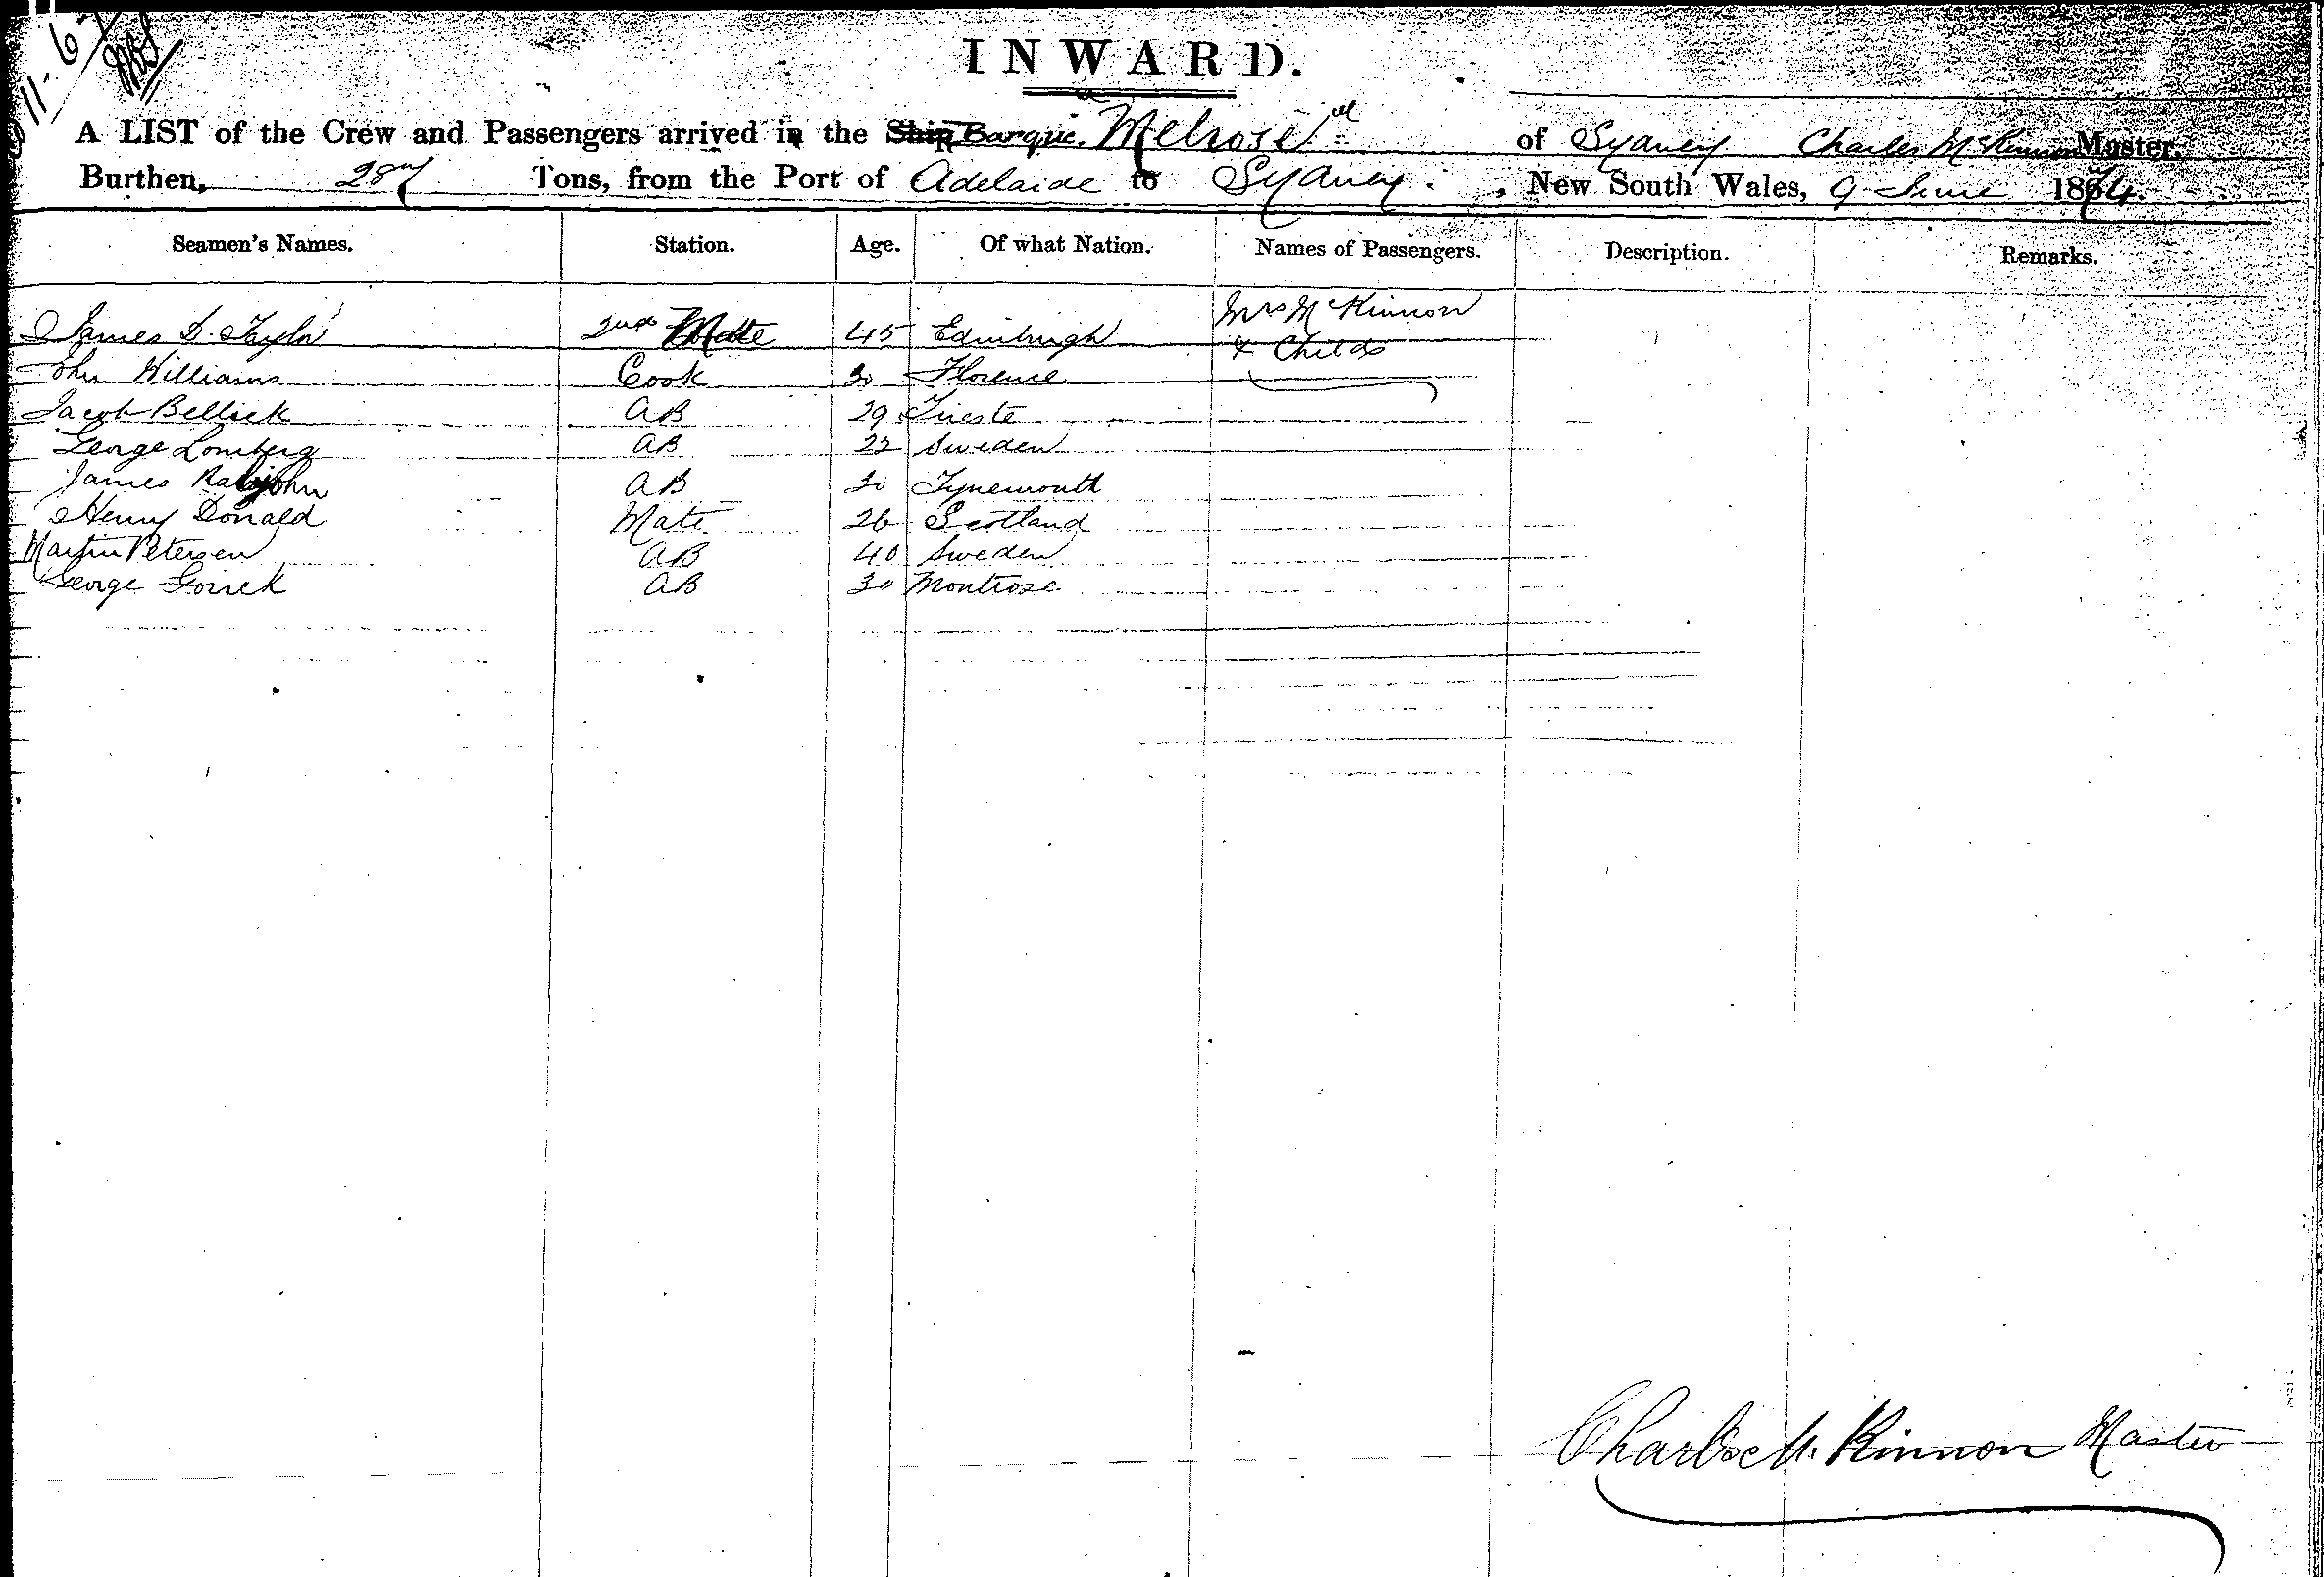 11-6-
INWARD.
A LIST of the Crew and Passengers arrived in the Ship Barque Melrose of Sydney Charles McKinnon Master.
Burthen, 287 Tons, from the Port of Adelaide to Sydney. , New South Wales, 9 June 1874.
Seamen's Names. Station. Age. Of what Nation. Names of Passengers. Description. Remarks.
James D. Taylor 2nd Mate 45 Edinburgh Mrs McKinnon
& Child
John Williams Cook 30 Florence
Jacob Bellick AB 29 Trieste
George Lomberg AB 22 Sweden
James AB 30 Tynemouth
Henry Donald Mate 26 Scotland
Martin Petersen AB 40 Sweden
George AB 30 Montrose
Charles Mc Kinnon Master